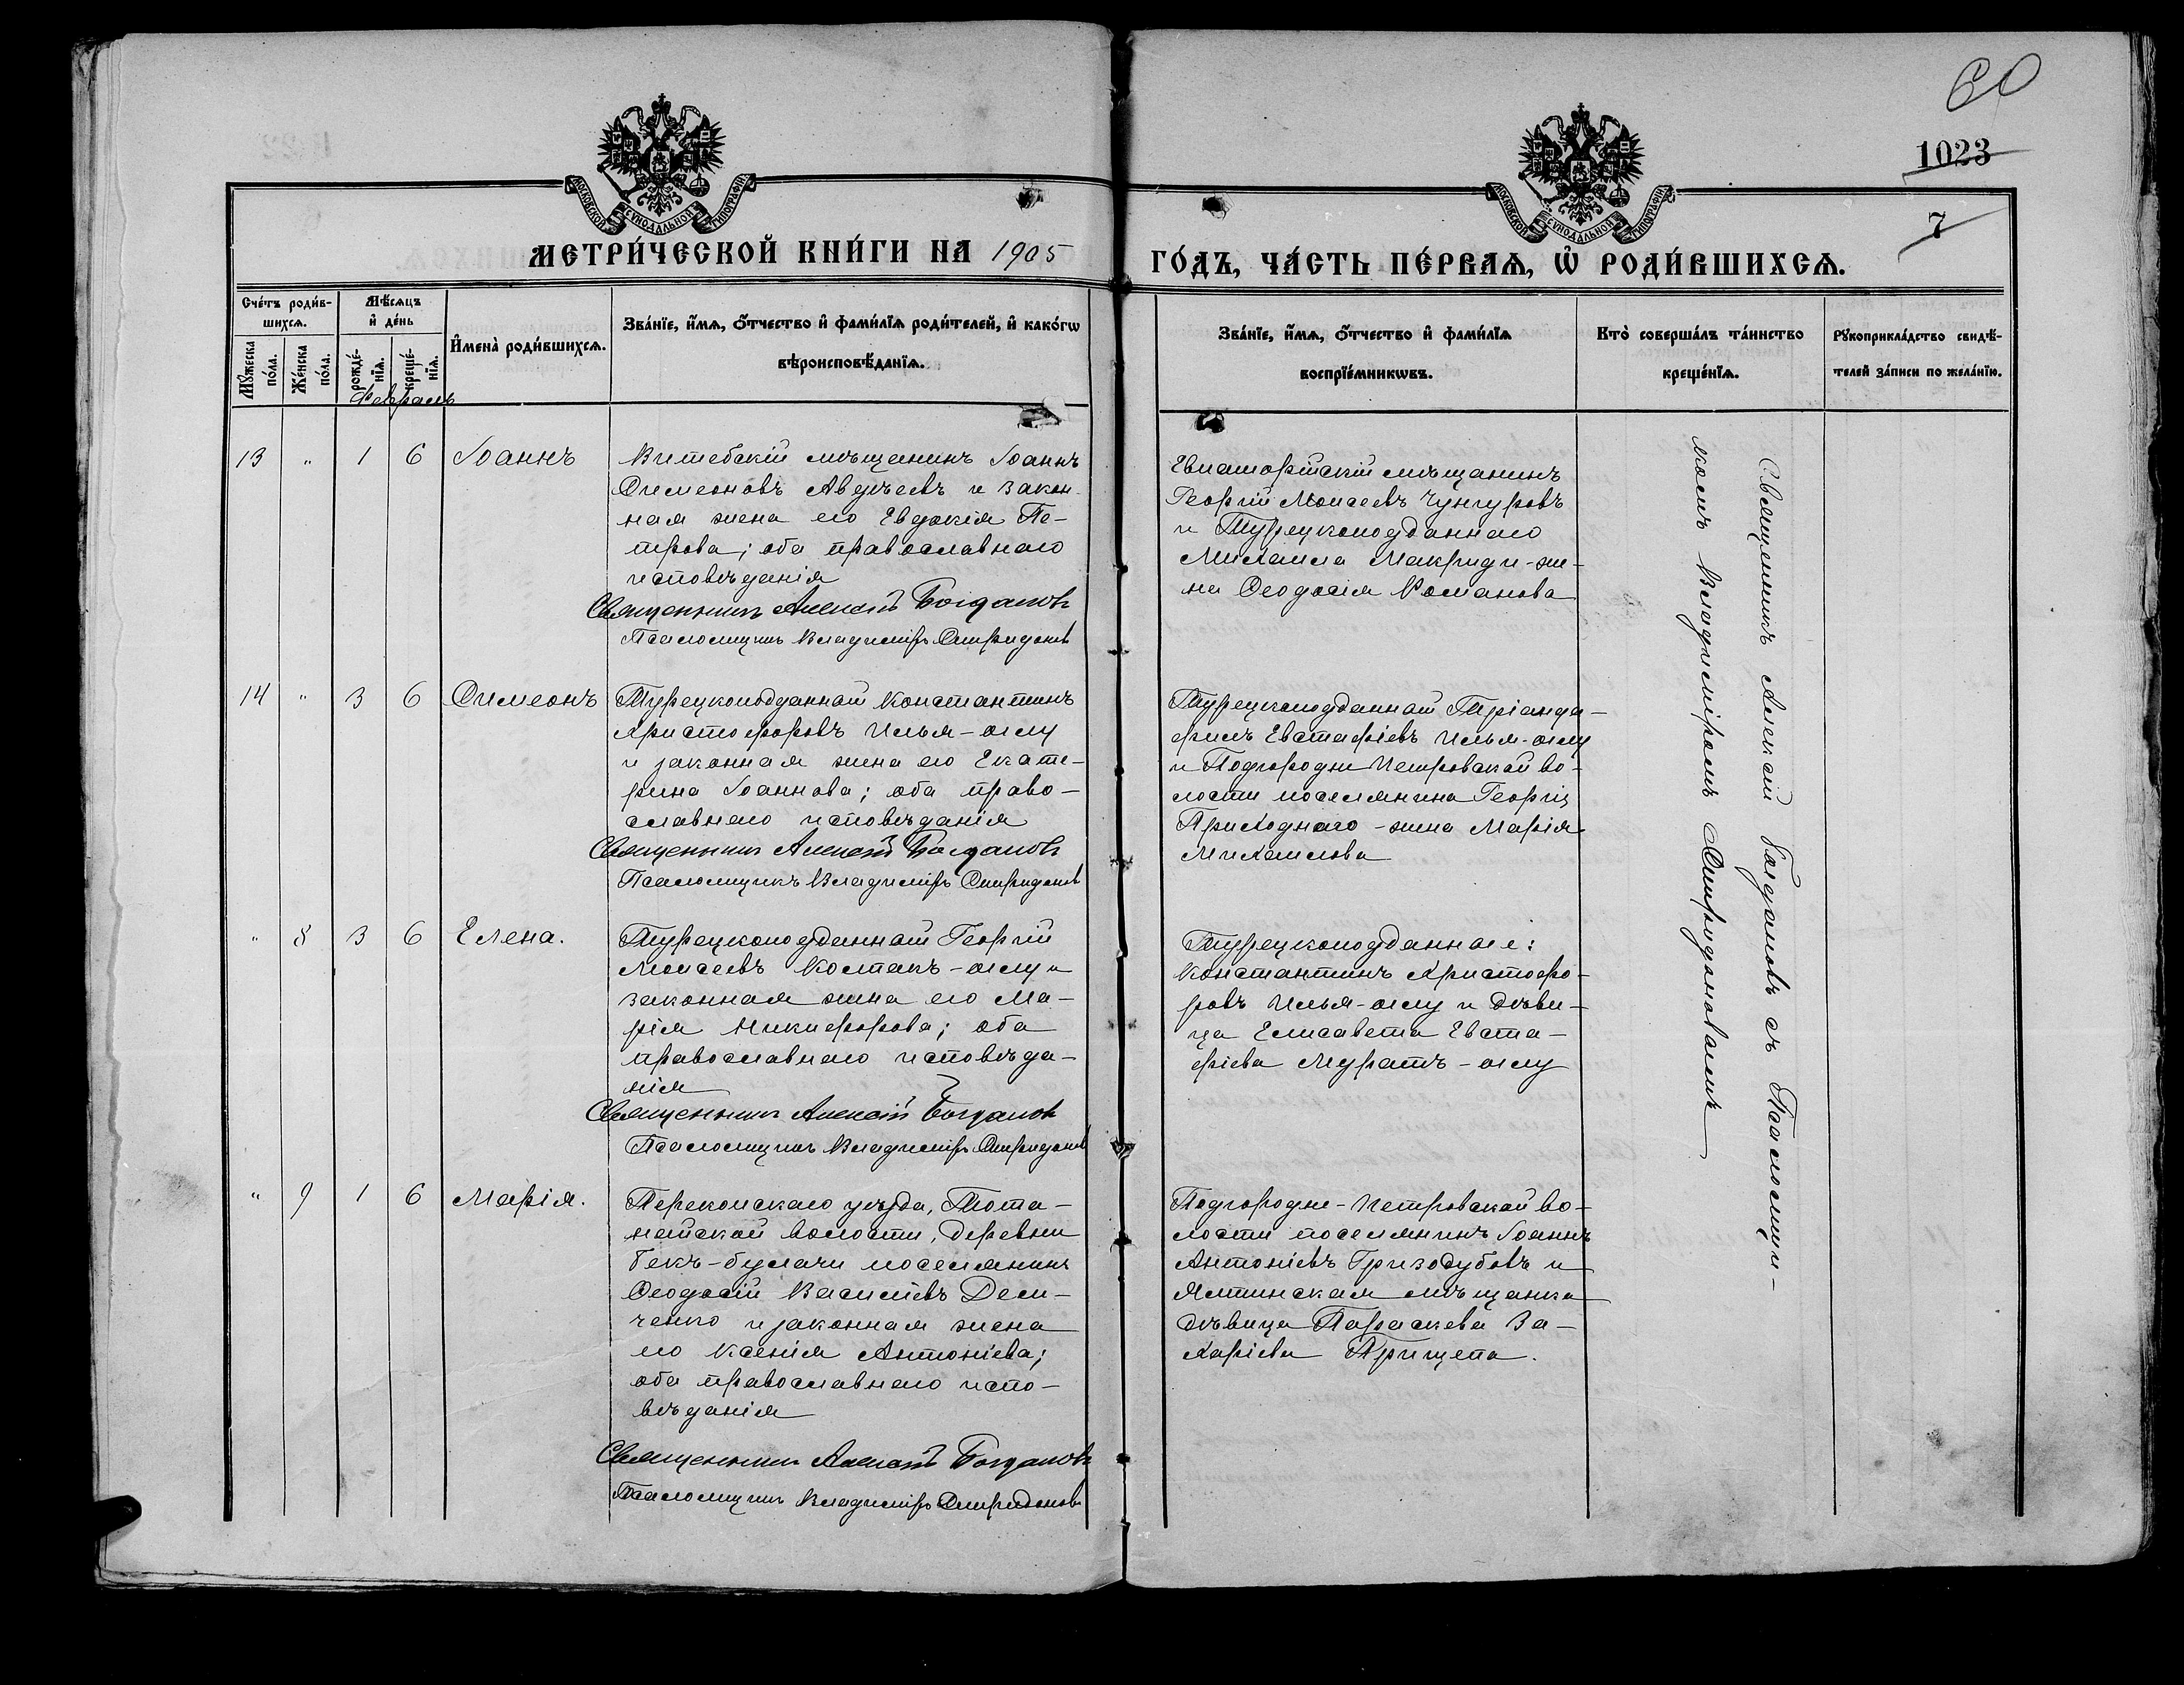 60
1023
7
МОСКОВСКОЙ СУНОДАЛЬНОЙ ТИПОГРАФІИ
МОСКОВСКОЙ СУНОДАЛЬНОЙ ТИПОГРАФІИ
МЕТРИ́ЧЕСКОЙ КНИ́ГИ НА 1905
ГО́ДЪ, ЧА́СТЬ ПЕ́РВАѦ, Ѡ҆ РОДИ́ВШИХСѦ.
Сче́тъ роди́в-
шихсѧ.
Мꙋ́жеска
по́ла.
Же́нска
по́ла.
Мѣ́сѧцъ
и҆ де́нь
рожде́-
нїѧ.
креще́-
нїѧ.
И҆мена̀ роди́вшихсѧ.
Зва́нїе, и҆́мѧ, ѻ҆́тчество и҆ фами́лїѧ роди́телей, и҆ како́гѡ
вѣроисповѣ́данїѧ.
Зва́нїе, и҆́мѧ, ѻ҆́тчество и҆ фами́лїѧ
воспрїе́мникѡвъ.
Кто̀ соверша́лъ та́инство
креще́нїѧ.
Рꙋкоприкла́дство свидѣ́-
телей за́писи по жела́нїю.
Февраль
13 " 1 6 Іоаннъ
Витебскій мѣщанинъ Іоаннъ
Симеоновъ Авдѣевъ и закон-
ная жена его Евдокія Пе-
трова; оба православнаго
исповѣданія
Священникъ Алексій Богдановъ
Псаломщикъ Владиміръ Спиридоновъ
Евпаторійскій мѣщанинъ
Георгій Моисеевъ Чунгуровъ
и Турецкоподданнаго
Михаила Макриди-же-
на Ѳеодосія Романова
14 " 3 6 Симеонъ
Турецкоподданный Константинъ
Христофоровъ Илья-оглу
и законная жена его Екате-
рина Іоаннова; оба право-
славнаго исповѣданія
Священникъ Алексій Богдановъ
Псаломщикъ Владиміръ Спиридоновъ
Турецкоподданный Тріанда-
филъ Евстафіевъ Илья-оглу
и Подгородне Петровской во-
лости поселянина Георгія
Приходнаго-жена Марія
Михаилова
" 8 3 6 Елена.
Турецкоподданный Георгій
Моисеевъ Костакъ-оглу и
законная жена его Ма-
рія Никифорова; оба
православнаго исповѣда-
нія
Священникъ Алексій Богдановъ
Псаломщикъ Владиміръ Спиридоновъ
Турецкоподданные:
Константинъ Христофо-
ровъ Илья-оглу и дѣви-
ца Елисавета Евста-
фіева Муратъ-оглу
" 9 1 6 Марія.
Перекопскаго уѣзда, Тота-
найской волости, деревни
Бекъ-булачи поселянинъ
Ѳеодосій Василіевъ Дем-
ченко и законная жена
его Ксенія Антоніева;
оба православнаго испо-
вѣданія
Священникъ Алексій Богдановъ
Псаломщикъ Владиміръ Спиридоновъ
Подгородне-Петровской во-
лости поселянинъ Іоаннъ
Антоніевъ Гризодубовъ и
Ялтинская мѣщанка
дѣвица Параскева За-
харіева Прищепа.
Священникъ Алексій Богдановъ съ Псаломщи-
комъ Владиміромъ Спиридоновымъ